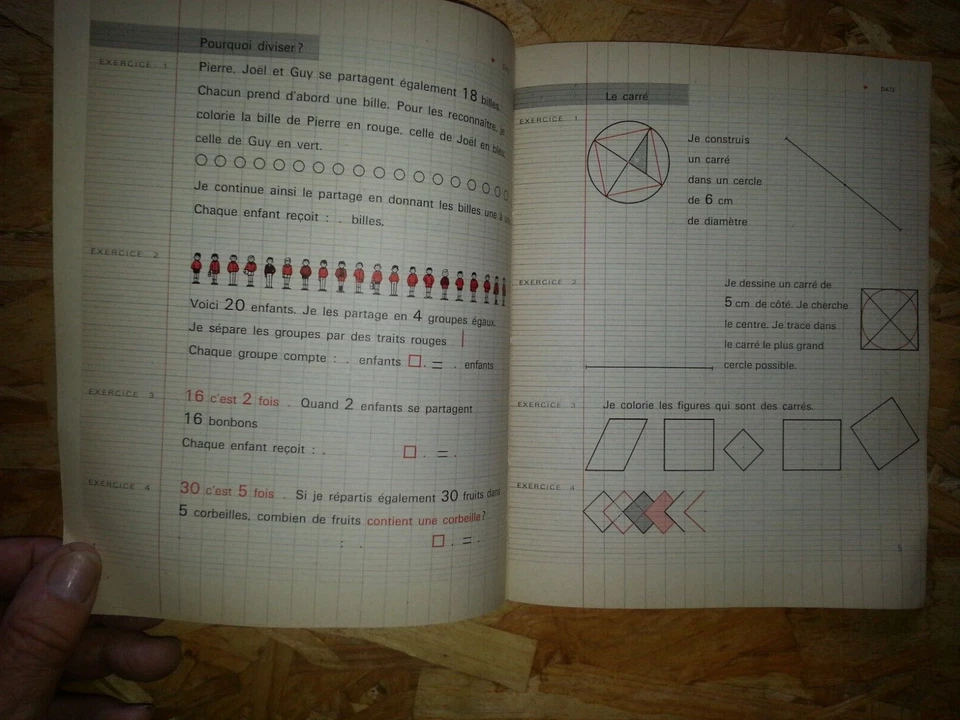 Pourquoi diviser ?
EXERCICE 1
Pierre, Joël et Guy se partagent également 18 billes.
Chacun prend d'abord une bille. Pour les reconnaitre, je
colorie la bille de Pierre en rouge, celle de Joël en bleu,
celle de Guy en vert.
Je continue ainsi le partage en donnant les billes une à
Chaque enfant reçoit : . billes.
EXERCICE 2
Voici 20 enfants. Je les partage en 4 groupes égaux.
Je sépare les groupes par des traits rouges |
Chaque groupe compte : . enfants □ . = . enfants
EXERCICE 3
16 c'est 2 fois . Quand 2 enfants se partagent
16 bonbons
Chaque enfant reçoit : . □ . = .
EXERCICE 4
30 c'est 5 fois . Si je répartis également 30 fruits dans
5 corbeilles, combien de fruits contient une corbeille ?
: . □ . = .
DATE
Le carré
EXERCICE 1
Je construis
un carré
dans un cercle
de 6 cm
de diamètre
EXERCICE 2
Je dessine un carré de
5 cm de côté. Je cherche
le centre. Je trace dans
le carré le plus grand
cercle possible.
EXERCICE 3
Je colorie les figures qui sont des carrés.
EXERCICE 4
5